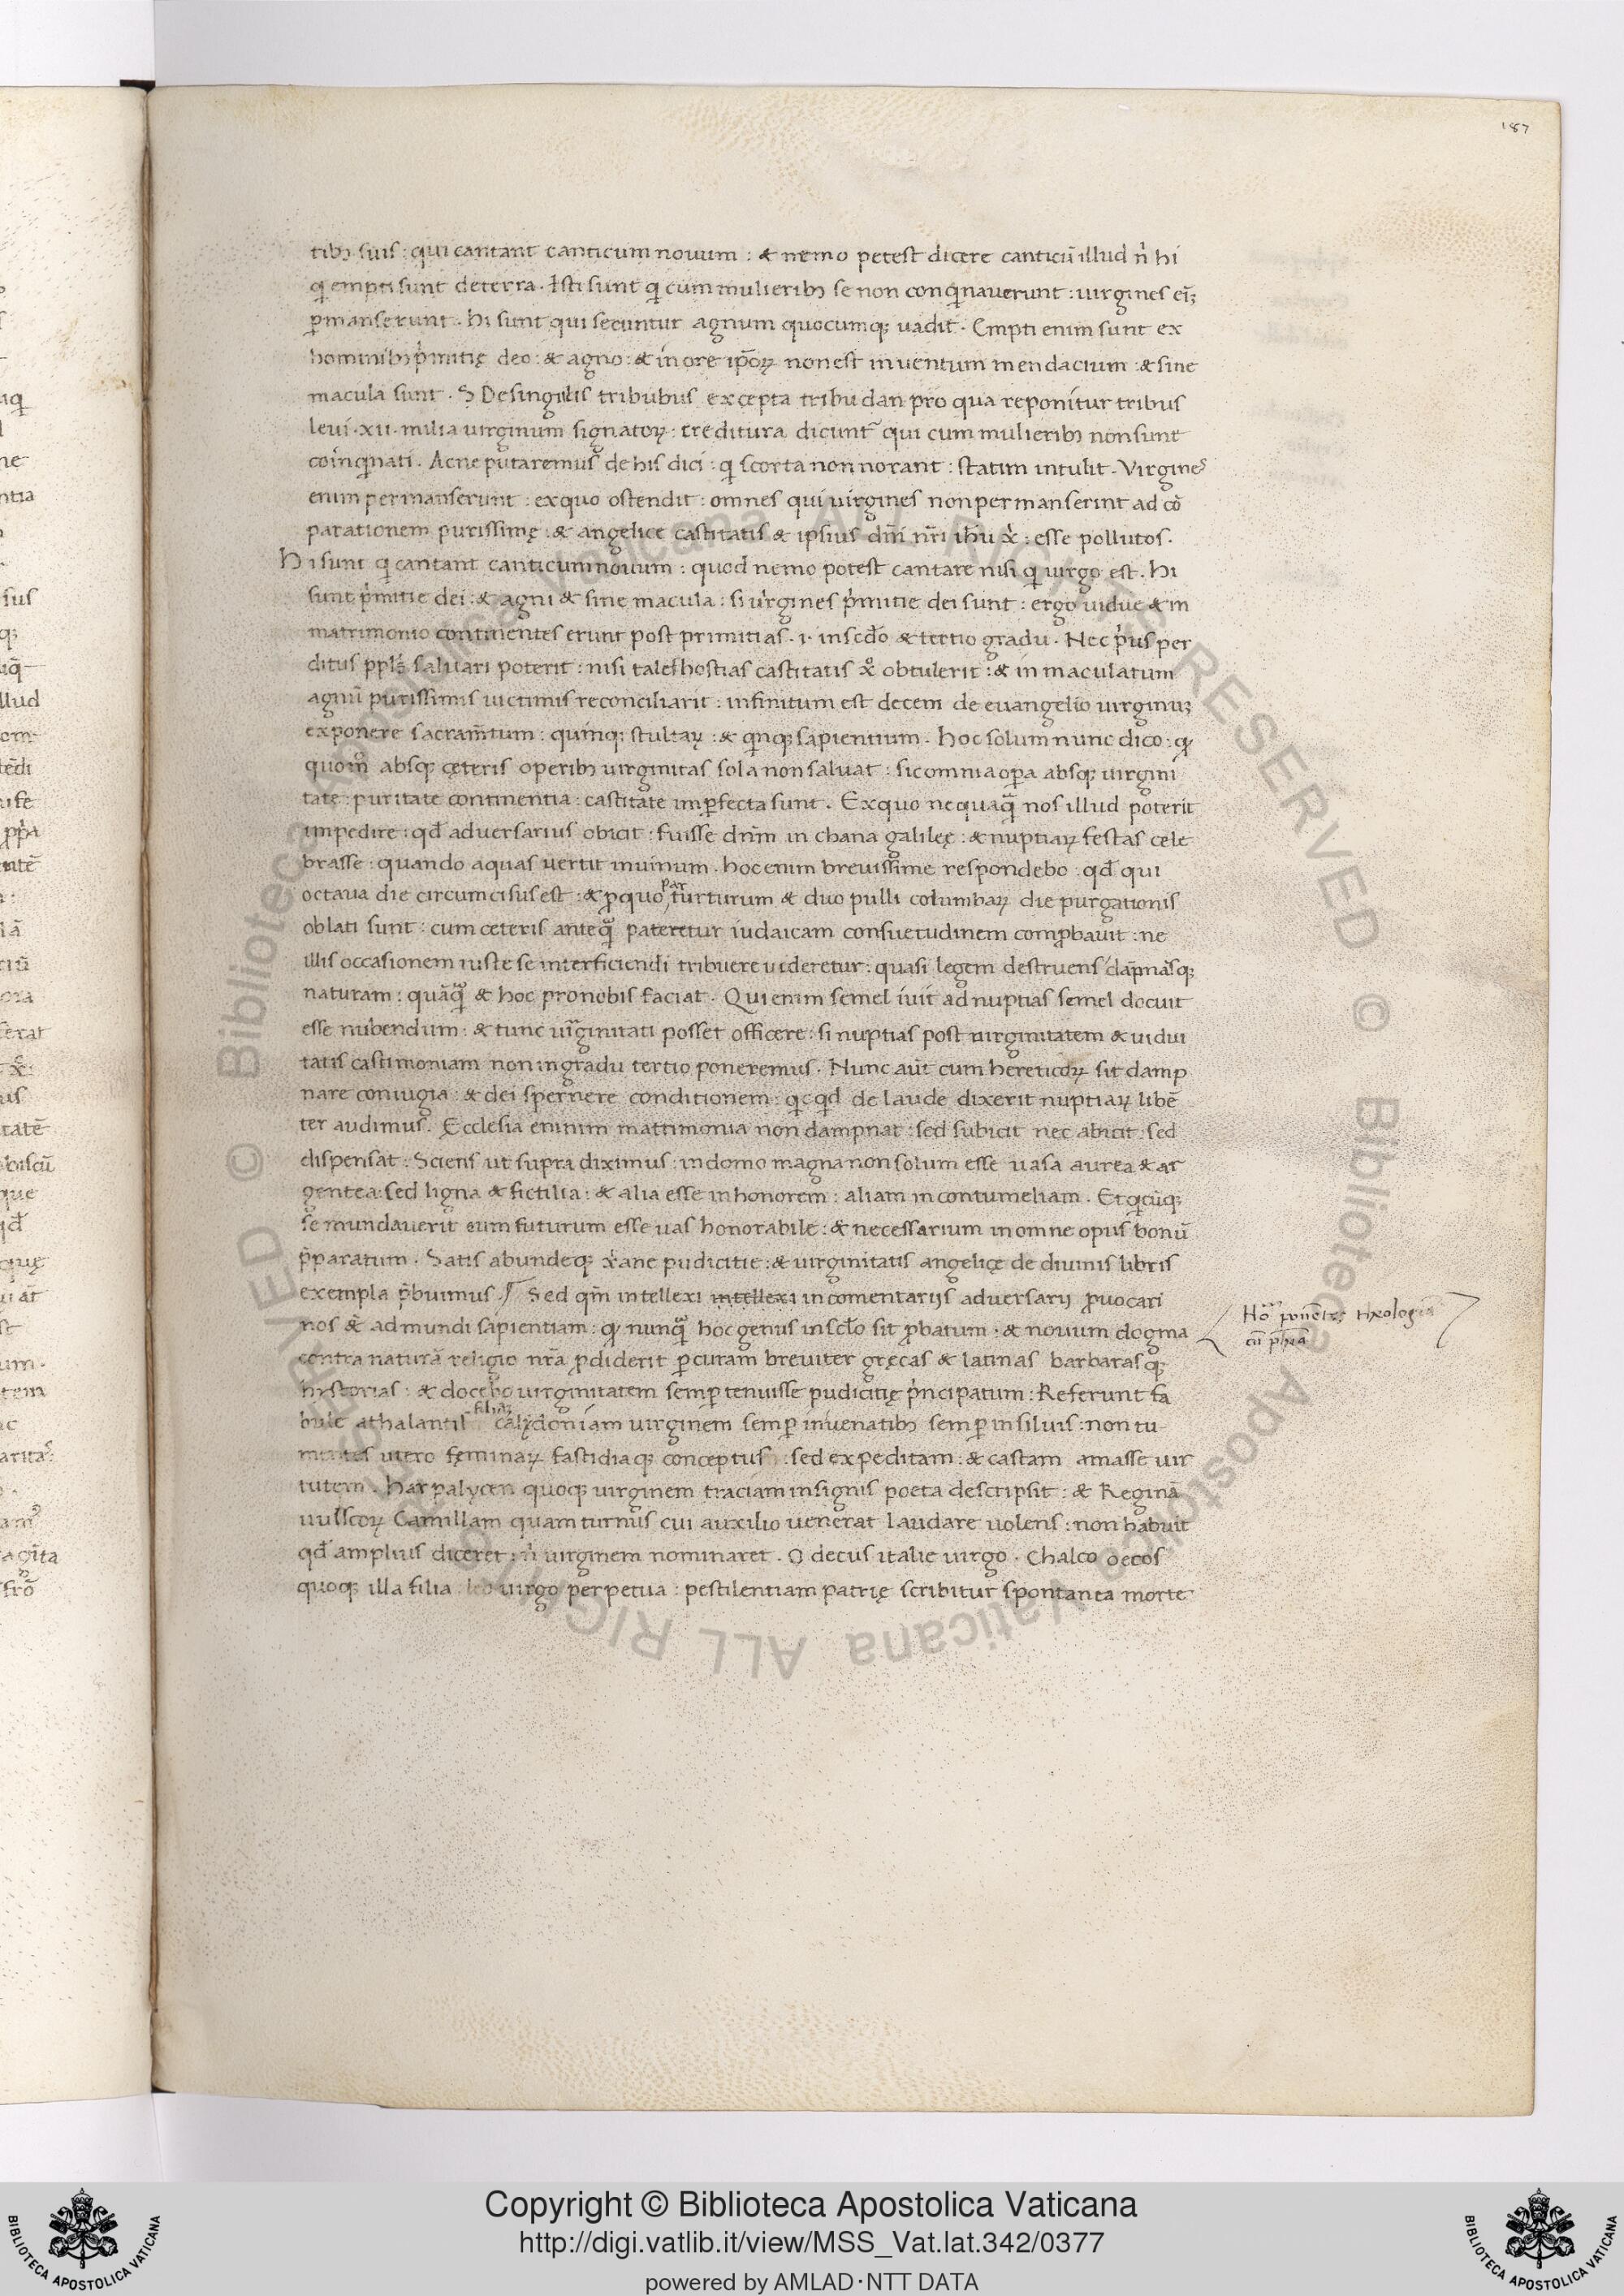 187
tibꝫ suis : qui cantant canticum nouum : & nemo potest dicere canticū illud n̉ hi
q̉ empti sunt de terra . Isti sunt q̉ cum mulieribꝫ se non conq̉nauerunt : uirgines ei̅ꝫ
ꝑmanserunt . Hi sunt qui secuntur agnum quocumqꝫ uadit . Empti enim sunt ex
hominibꝫ p̉mitię deo : & agno : & in ore ip̅oꝝ non est inuentum mendacium : & sine
macula sunt . S De singulis tribubus excepta tribu dan pro qua reponitur tribus
leui . xii . milia uirginum signatoꝝ : creditura dicunt᷑ qui cum mulieribꝫ non sunt
coinq̉nati . Ac ne putaremus de his dici : q̉ scorta non norant : statim intulit . Virgines
enim permanserunt : ex quo ostendit : omnes qui uirgines non permanserint ad cō
parationem purissimę : & angelice castitatis & ipsius dn̅i nr̅i ihu x̉ : esse pollutos .
Hi sunt q̉ cantant canticum nouum : quod nemo potest cantare nisi q̉ uirgo est . Hi
sunt p̉mitie dei : & agni & sine macula : si uirgines p̉mitie dei sunt : ergo uidue & in
matrimonio continentes erunt post primitias . i . in scd̅o & tertio gradu . Nec p̉us per
ditus ppl̅s saluari poterit : nisi tales hostias castitatis xº obtulerit : & inmaculatum
agnū purissimis uictimis reconciliarit : infinitum est decem de euangelio uirginuꝫ
exponere sacram̅tum : quinqꝫ stultaꝝ : & q̉nqꝫ sapientium . Hoc solum nunc dico : qꝫ
quom̊ absqꝫ cęteris operibꝫ uirginitas sola non saluat : sic omnia oꝑa absqꝫ uirgini
tate : puritate continentia : castitate imꝑfecta sunt . Ex quo nequaq̃ nos illud poterit
impedire : qd̅ aduersarius obicit : fuisse dn̅m in chana galileę : & nuptiaꝝ festas cele
brasse : quando aquas uertit in uinum . hoc enim breuissime respondebo : qd̅ qui
octaua die circumcisus est : & ꝓ quo par turturum & duo pulli columbaꝝ die purgationis
oblati sunt : cum ceteris anteq̃ pateretur iudaicam consuetudinem comꝓbauit : ne
illis occasionem iuste se interficiendi tribuere uideretur : quasi legem destruens dāpnāsqꝫ
naturam : quāq̃ & hoc pro nobis faciat . Qui enim semel iuit ad nuptias semel docuit
esse nubendum : & tunc uirginitati posset officere : si nuptias post uirginitatem & uidui
tatis castimoniam non in gradu tertio poneremus . Nunc aut̅ cum hereticoꝝ sit damp
nare coniugia : & dei spernere conditionem : q̉cq̉d de laude dixerit nuptiaꝝ libē
ter audimus . Ecclesia eninim matrimonia non dampnat : sed subicit nec abicit : sed
dispensat . Sciens ut supra diximus : in domo magna non solum esse uasa aurea & ar
gentea : sed ligna & fictilia : & alia esse in honorem : aliam in contumeliam . Et q̉cūqꝫ
se mundauerit eum futurum esse uas honorabile : & necessarium in omne opus bonū
p̅paratum . Satis abundeqꝫ x̉ane pudicitie : & uirginitatis angelicę de diuinis libris
exempla p̅buimus . ⁋ Sed qm̅ intellexi intellexi in comentariis aduersarii ꝓuocari
nos & ad mundi sapientiam : qꝫ nunq̃ hoc genus in scl̅o sit ꝓbatum : & nouum dogma
contra naturā religio nr̅a ꝓdiderit ꝑcuram breuiter gręcas & latinas barbarasqꝫ
historias : & docebo uirginitatem semꝑ tenuisse pudicitię p̉ncipatum : Referunt fa
bule athalantil filiaꝫ calydoniam uirginem semꝑ in uenatibꝫ semꝑ in siluis : non tu-
mentes utero feminaꝝ fastidiaqꝫ conceptus : sed expeditam : & castam amasse uir
tutem . Harpalycen quoqꝫ uirginem traciam insignis poeta descripsit : & Reginā
uulscoꝝ Camillam quam turnus cui auxilio uenerat laudare uolens : non habuit
qd̅ amplius diceret : n̉ uirginem nominaret . O decus italie uirgo . Chalco oecos
quoqꝫ illa filia leo uirgo perpetua : pestilentiam patrię scribitur spontanea morte
Copyright © Biblioteca Apostolica Vaticana
http://digi.vatlib.it/view/MSS_Vat.lat.342/0377
powered by AMLAD·NTT DATA
BIBLIOTECA APOSTOLICA VATICANA
BIBLIOTECA APOSTOLICA VATICANA
© Biblioteca Apostolica Vaticana ALL RIGHTS RESERVED © Biblioteca Apostolica Vaticana ALL RIGHTS RESERVED